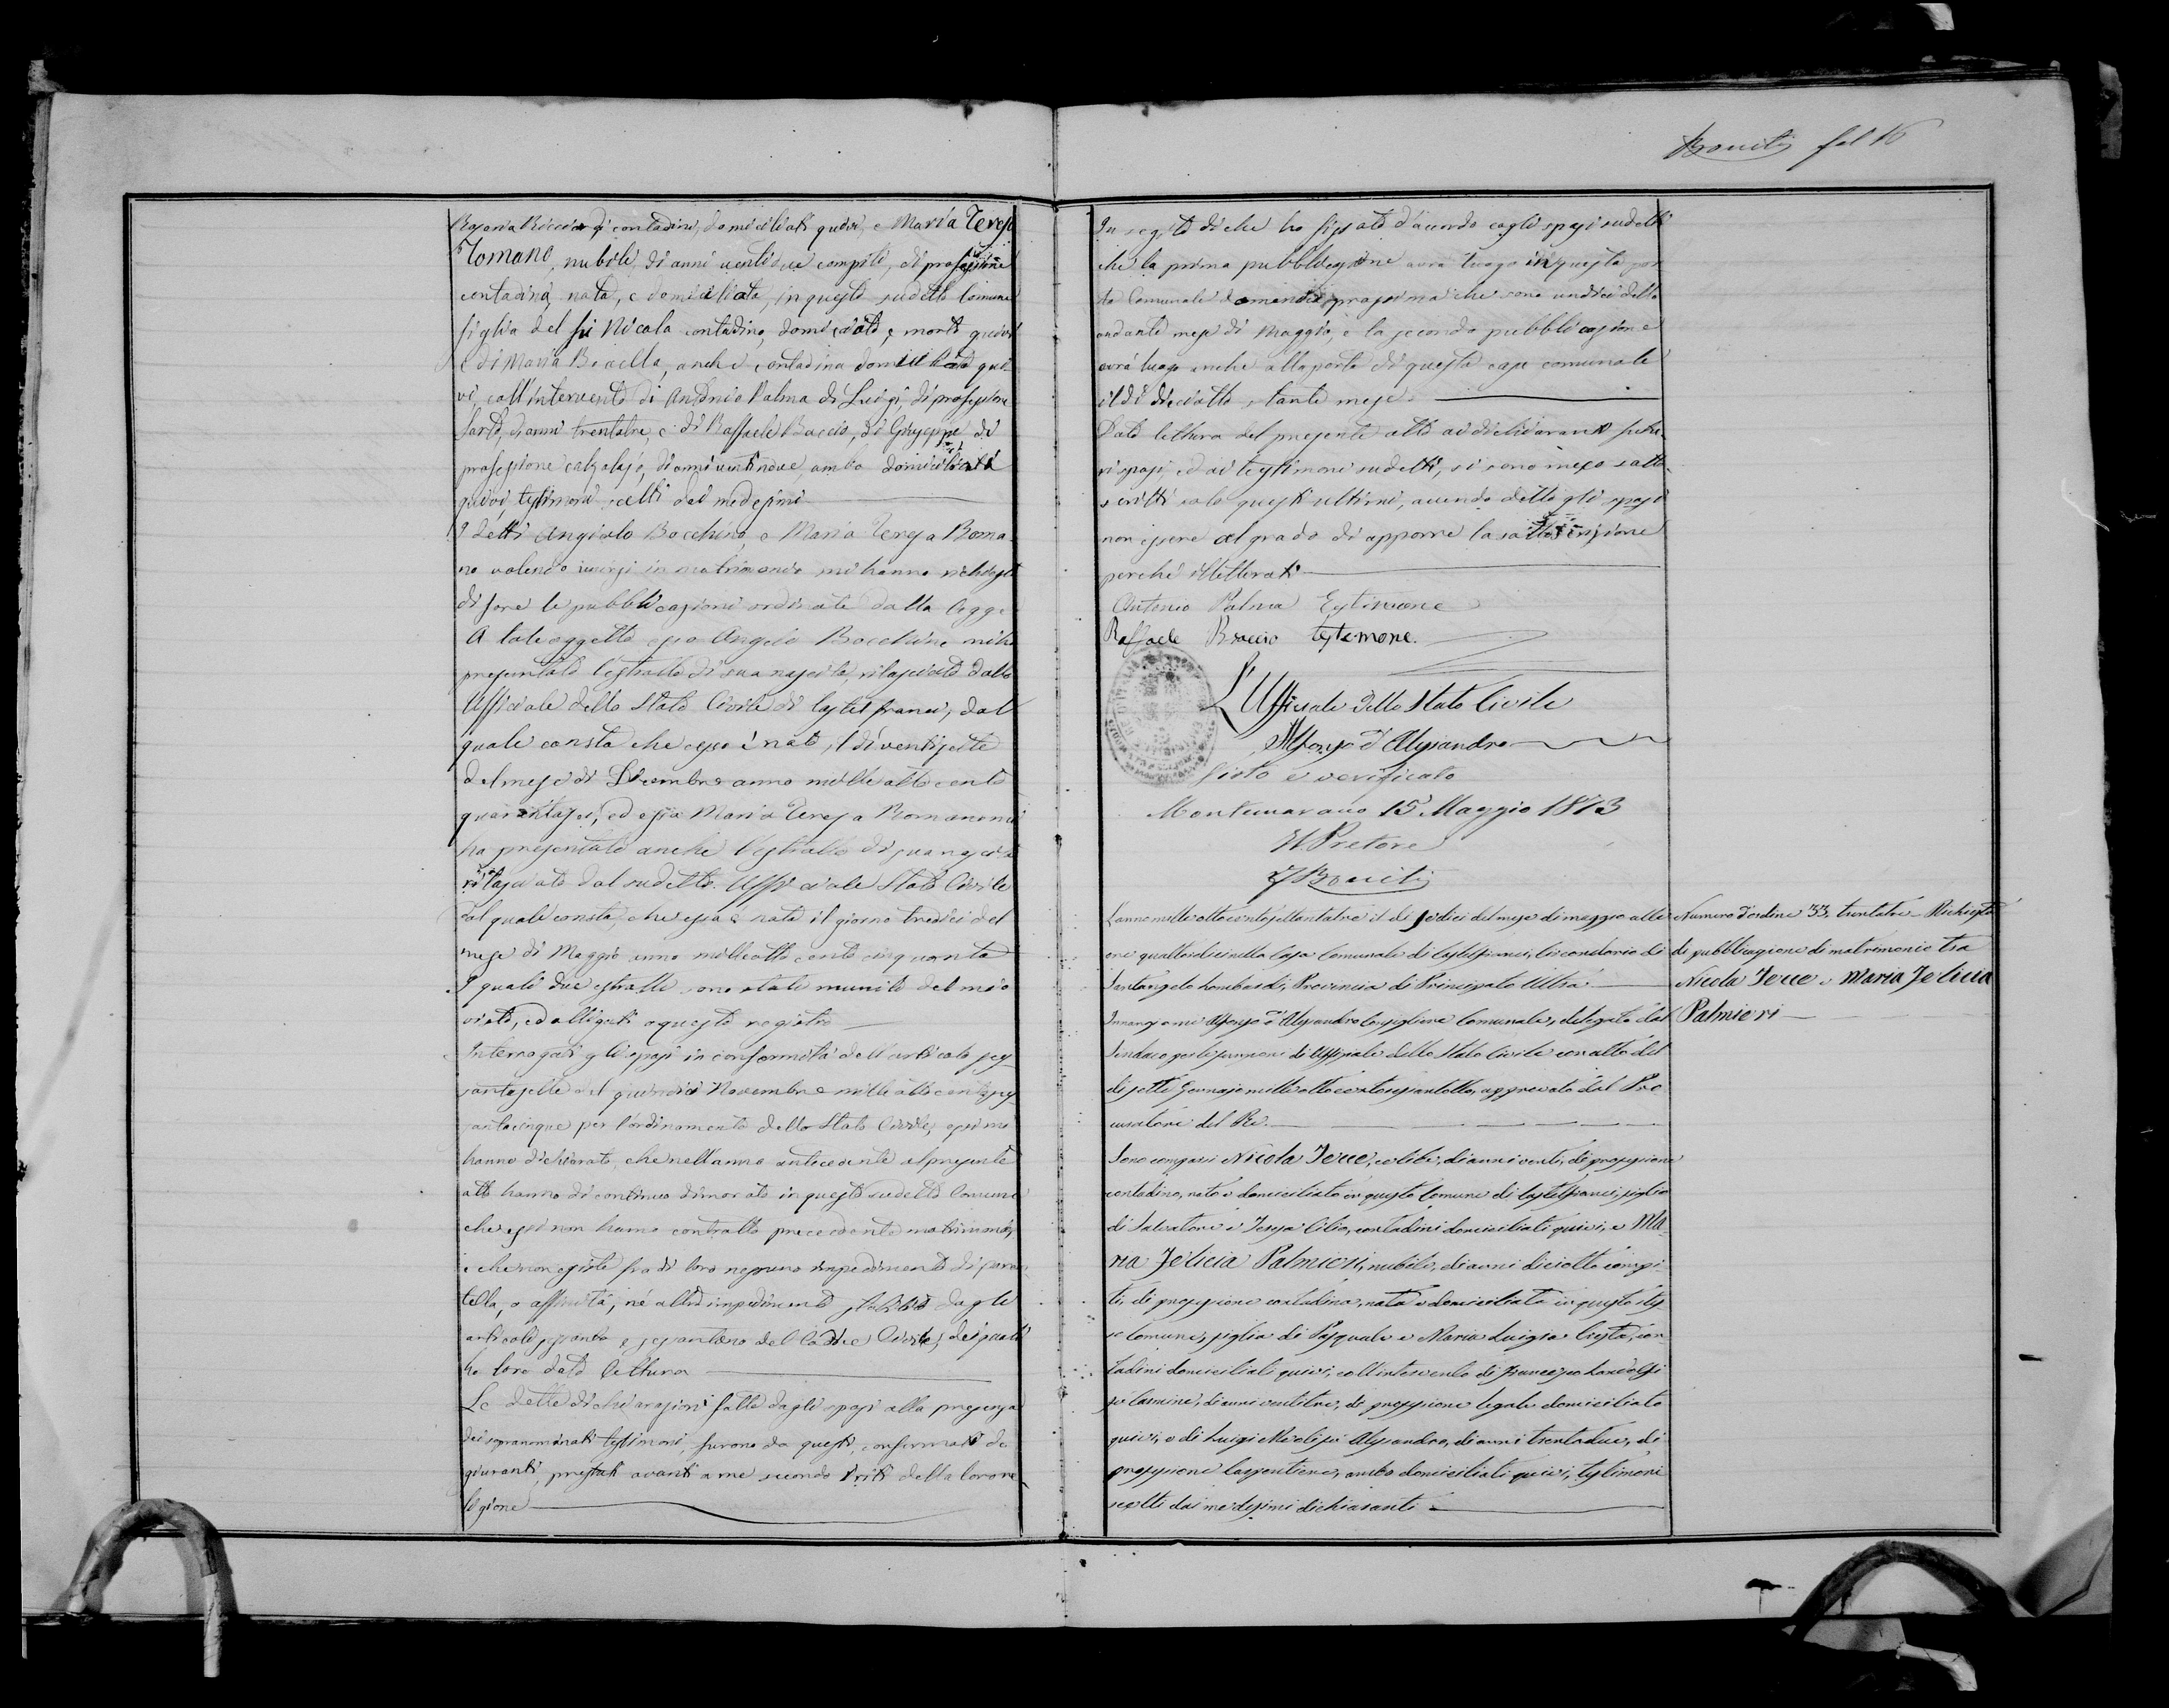 Bouiti fol 16
Rosaria Ricciardi contadini, domiciliati quivi, e Maria Teresa
Romano, nubile, di anni ventidue compiti, di professione
contadina, nata, e domiciliata, in questo sudetto Comune
figlia del fu Nicola contadino, domiciliato, e morto quivi
e di Maria Boccella, anche contadina domiciliata qui
vi, coll'intervento di Antonio Palma di Luigi, di professione
Sarto, di anni trentatre, e di Raffaele Braccio, di Giuseppe di
professione calzolajo, di anni ventinove, ambo domiciliati
quivi, testimoni scelti dai medesimi
I detti Angiolo Bocchino, e Maria Teresa Roma
no volendo unirsi in matrimonio mi hanno richiesto
di fare le pubblicazioni ordinate dalla legge
A tale oggetto esso Angelo Bocchino mi ha
presentato l'estratto di sua nascita, rilasciato dallo
Ufficiale dello Stato Civile di Castelfranci, dal
quale consta che esso è nato, il dì ventisette
del mese di Dicembre anno mille otto cento
quarantasei, ed essa Maria Teresa Romano mi
ha presentato anche l'estratto di sua nascita
rilasciato dal sudetto Ufficiale Stato Civile
dal quale consta, che essa è nata il giorno tredici del
mese di Maggio anno mille otto cento cinquanta
I quali due estratti sono stati muniti del mio
visto, ed alligati a questo registro
Interrogati gli sposi in conformità dell'articolo ses
santasette del quindici Novembre mille otto cento ses
santacinque per l'ordinamento dello Stato Civile, essi mi
hanno dichiarato, che nell'anno antecedente al presente
atto hanno di continuo dimorato in questo sudetto Comune
che essi non hanno contratto precedente matrimonio,
e che non esiste fra di loro nessuno impedimento di paren
tella, o affinità, né altro impedimento stabilito dagli
articoli del Codice Civile, dei quali
ho loro dato lettura
Le dette dichiarazioni fatte dagli sposi alla presenza
dei sopranominati testimoni, furono da questi, confermati da
giuranti, prestati avanti a me secondo i riti della loro re
ligione
In seguito di che ho fissato d'accordo cogli sposi sudetti
che la prima pubblicazione avrà luogo in questa por
ta Comunale domenica prossima che sono undici dello
andante mese di Maggio, e la seconda pubblicazione
avrà luogo anche alla porta di questa casa comunale
il dì dieciotto stante mese
Dato lettura del presente atto ai dichiaranti futu
ri sposi ed ai testimoni sudetti, si sono meco sotto
scritti solo questi ultimi, avendo detto gli sposi
non essere al grado di apporre la sottoscrizione
perché illetterati
Antonio Palma Testimone
Raffaele Braccio testimone.
L'Uffiziale dello Stato Civile
Alfonso d'Alessandro
Visto e verificato
Montemarano 15 Maggio 1873
Il Pretore
L'anno mille otto cento settantatre il dì sedici del mese di maggio alle
ore quattordici nella Casa Comunale di Castelfranci, Circondario di
Santangelo Lombardi, Provincia di Principato Ultra
Innanzi a me Alfonso d'Alessandro Consigliere Comunale, delegato dal
Sindaco per le funzioni di Uffiziale dello Stato Civile con atto del
dì sette Gennajo mille otto cento sessantotto, approvato dal Pro
curatore del Re.
Sono comparsi Nicola Tecce, celibe, di anni venti, di professione
contadino, nato e domiciliato in questo Comune di Castelfranci, figlio
di Salvatore e Teresa Cilio, contadini domiciliati quivi, e Ma-
ria Felicia Palmieri, nubile, di anni diciotto compi-
ti, di professione contadina, nata e domiciliata in questo stes
so Comune, figlia di Pasquale e Maria Luigia Cresta, con
tadini domiciliati quivi, coll'intervento di Francesco Landolfi
fu Carmine, di anni ventitre, di professione legale domiciliato
quivi, e di Luigi Meoli fu Alessandro, di anni trentadue, di
professione Carpentiere, ambo domiciliati quivi, testimoni
scelti dai medesimi dichiaranti
Numero d'ordine 33. trentatre - Richiesta
di pubblicazione di matrimonio tra
Nicola Tecce e Maria Felicia
Palmieri